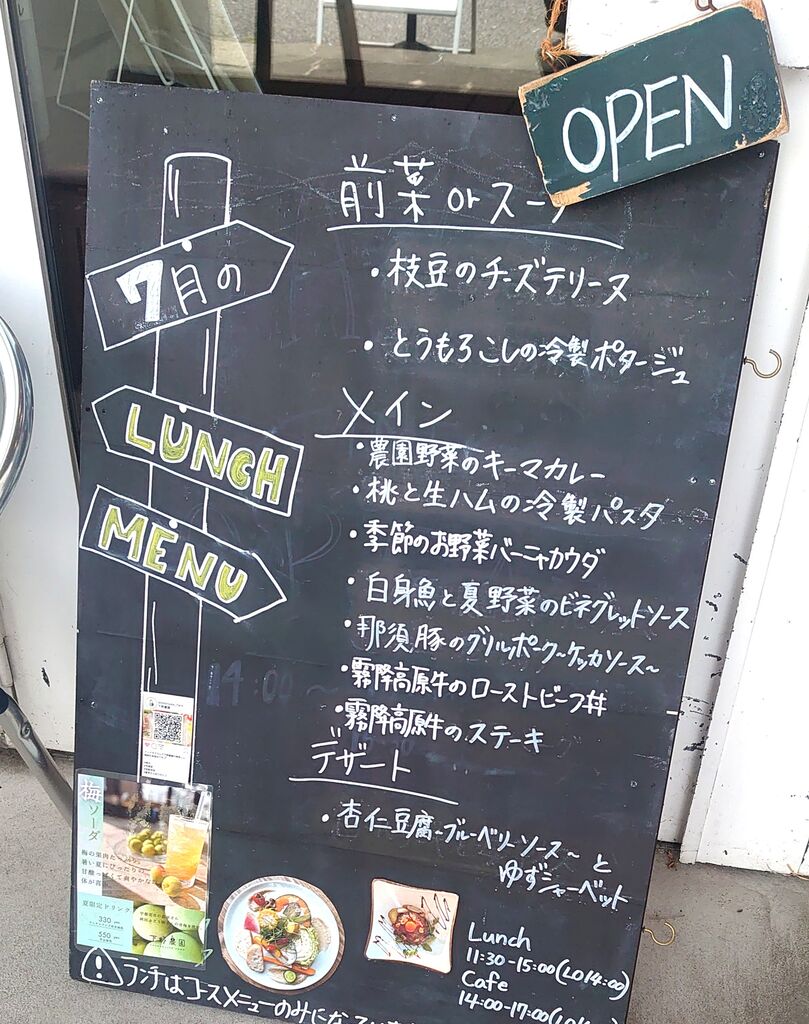 OPEN
7月の
LUNCH
MENU
前菜 or スープ
・枝豆のチーズテリーヌ
・とうもろこしの冷製ポタージュ
メイン
・農園野菜のキーマカレー
・桃と生ハムの冷製パスタ
・季節のお野菜バーニャカウダ
・白身魚と夏野菜のビネグレットソース
・那須豚のグリルポーク~ケッカソース~
・霧降高原牛のローストビーフ丼
・霧降高原牛のステーキ
デザート
・杏仁豆腐~ブルーベリーソース~と
ゆずシャーベット
14:00~
梅ソーダ
梅の果肉た
暑い夏にぴったりの
甘酸っぱ
体が喜
夏限定ドリンク
330
550
農園
Lunch
11:30-15:00(LO14:00)
Cafe
14:00-17:00(LO
ランチはコースメニューのみになって